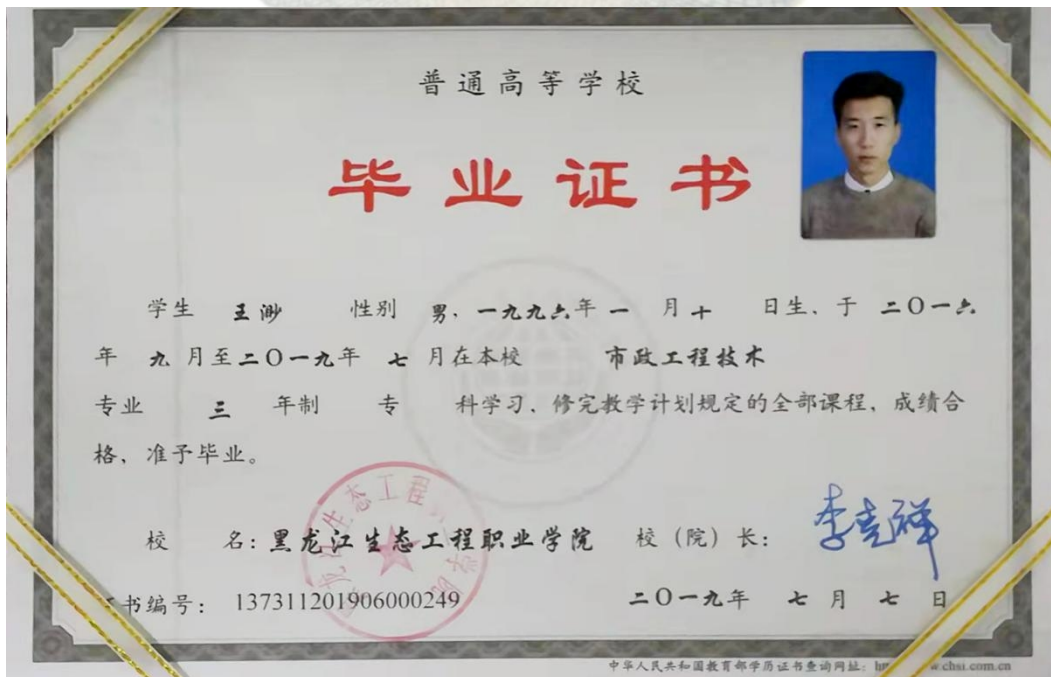 普通高等学校
毕业证书
学生 王渺 性别 男，一九九六年 一 月 十 日生，于 二〇一六
年 九 月至二〇一九年 七 月在本校 市政工程技术
专业 三 年制 专 科学习，修完教学计划规定的全部课程，成绩合
格，准予毕业。
校 名：黑龙江生态工程职业学院 校（院）长：李克祥
书编号： 137311201906000249 二〇一九年 七 月 七 日
中华人民共和国教育部学历证书查询网址： w.chsi.com.cn